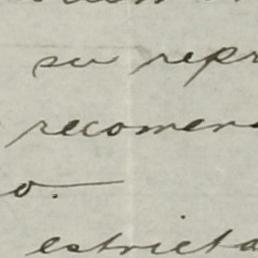 su repr
recomen
o.
estricta